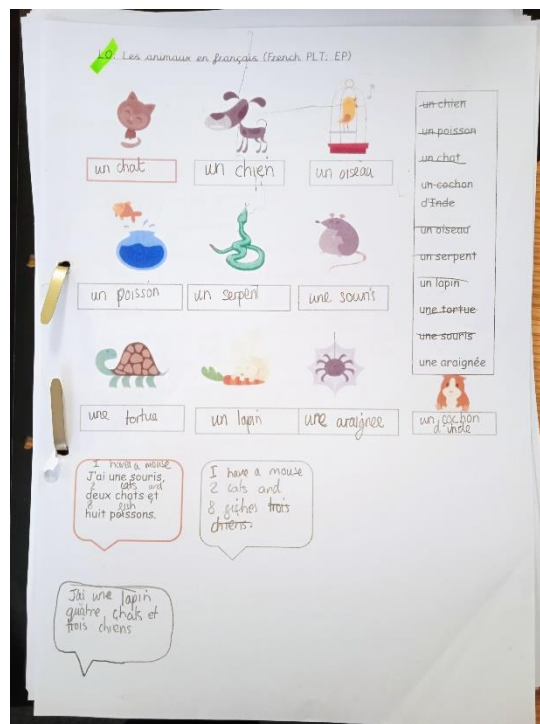 LO: Les animaux en français (French PLT: EP)
un chat
un chien
un oiseau
un poisson
un serpent
une souris
une tortue
un lapin
une araignee
un cochon
d'inde
un chien
un poisson
un chat
un cochon
d'Inde
un oiseau
un serpent
un lapin
une tortue
une souris
une araignée
I have a mouse
J'ai une souris,
2 cats and
deux chats et
8 fish
huit poissons.
I have a mouse
2 cats and
8 fishes trois
chiens.
J'ai une lapin
quatre chats et
trois chiens